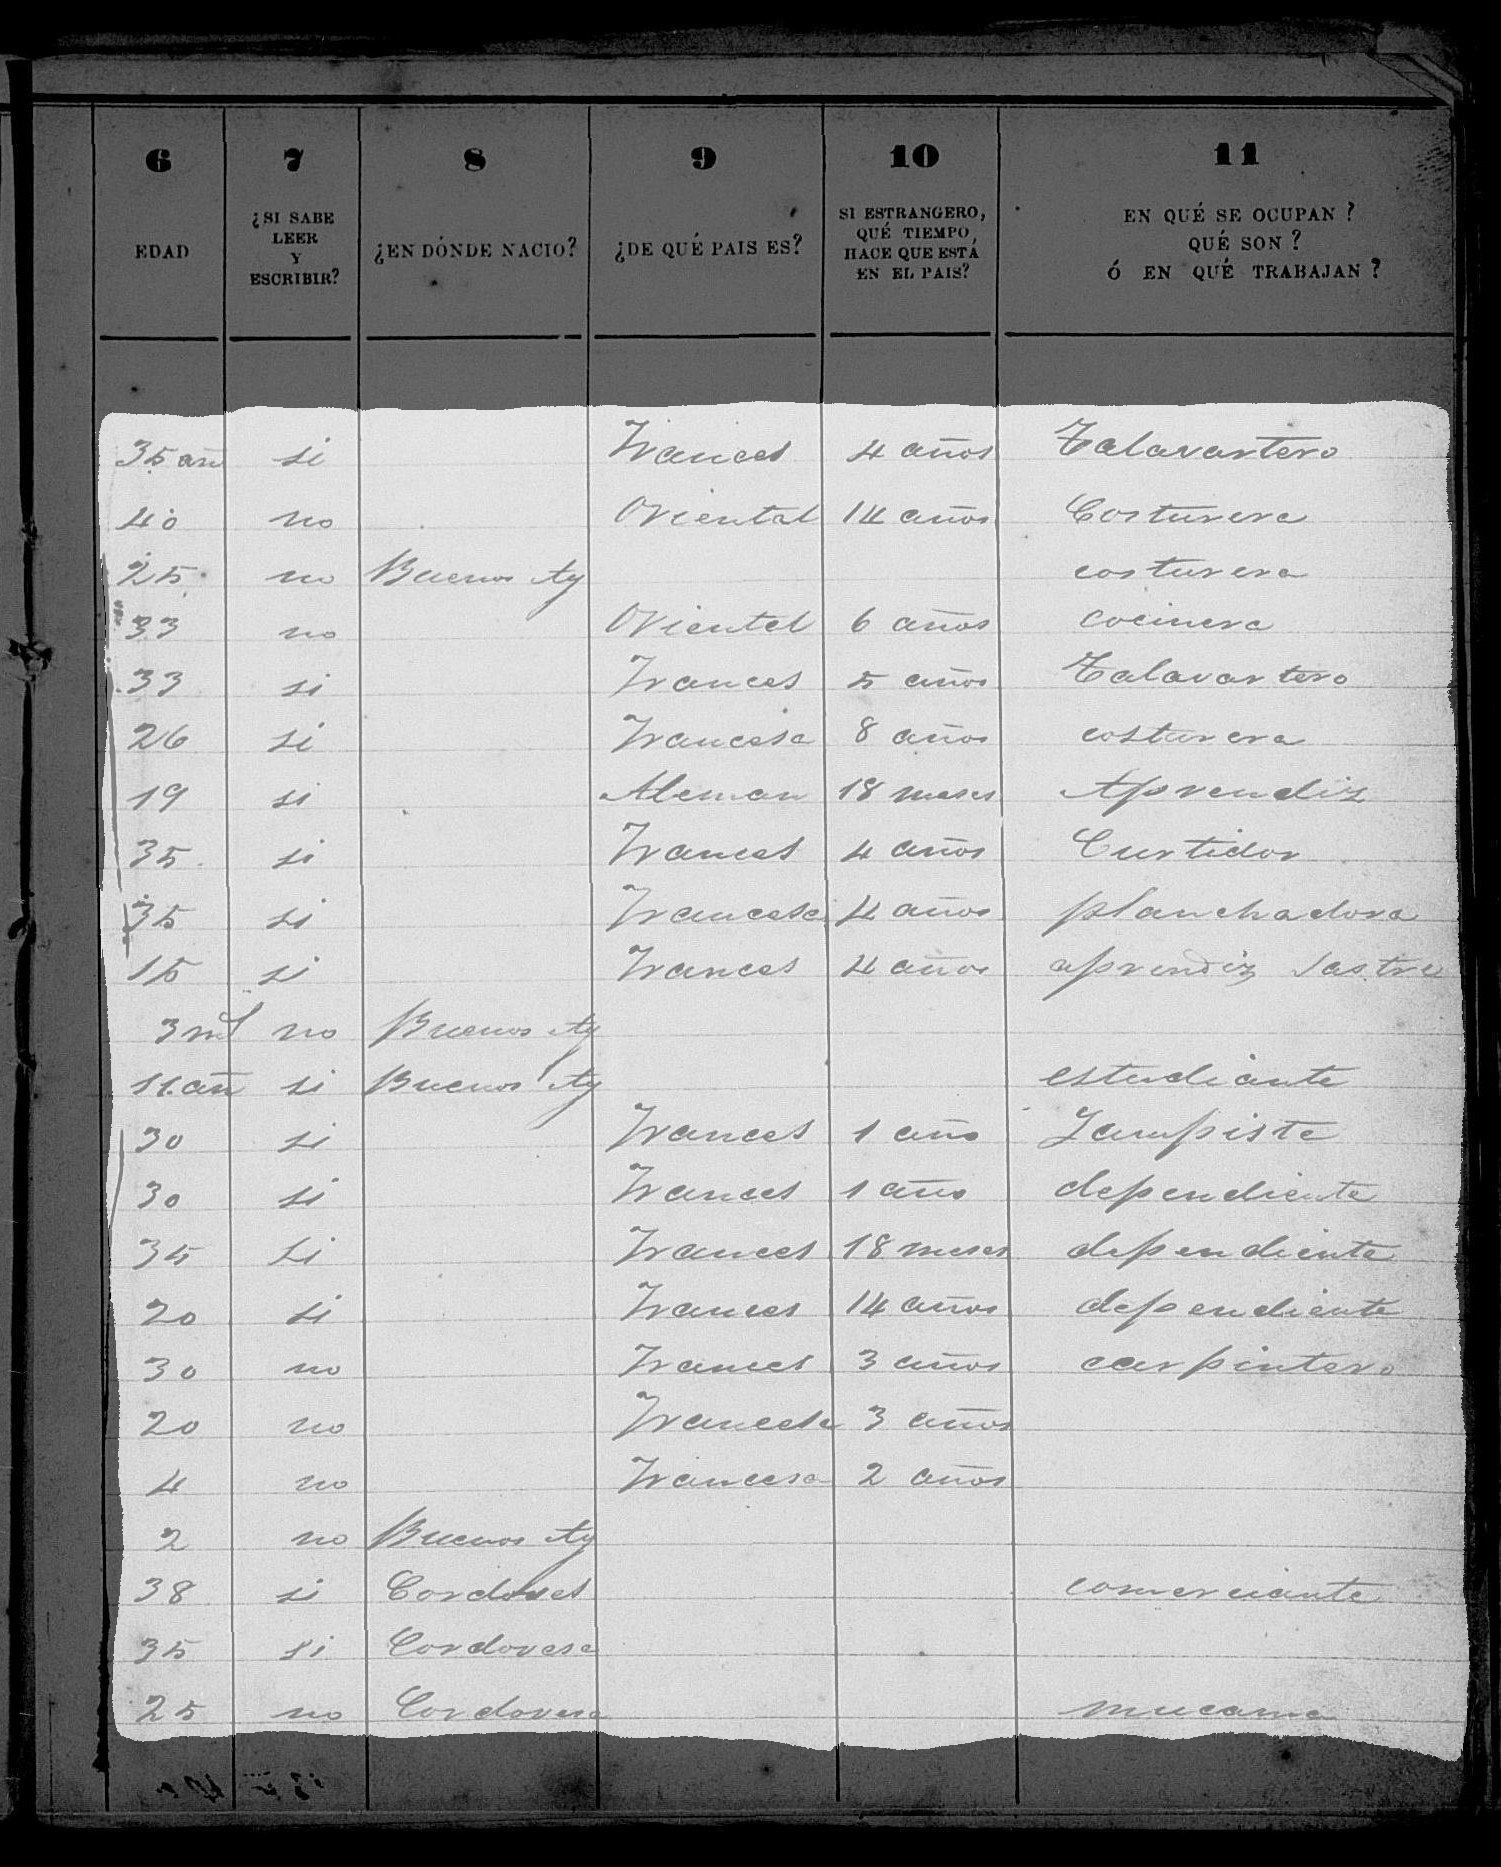 6 7 8 9 10 11
EDAD ¿SI SABE LEER Y ESCRIBIR? ¿EN DÓNDE NACIO? ¿DE QUÉ PAIS ES? SI ESTRANGERO, QUÉ TIEMPO HACE QUE ESTÁ EN EL PAIS? EN QUÉ SE OCUPAN? QUÉ SON? Ó EN QUÉ TRABAJAN?
35 añ si Frances 4 años Talavartero
40 no Oriental 14 años Costurera
25 no Buenos Ay costurera
33 no Oriental 6 años cocinera
33 si Frances 5 años Talavartero
26 si Francesa 8 años costurera
19 si Aleman 18 meses Aprendiz
35 si Frances 4 años Curtidor
35 si Francesa 4 años planchadora
15 si Frances 4 años aprendiz sastre
3 ms no Buenos Ay
11 añ si Buenos Ay estudiante
30 si Frances 1 año Lampiste
30 si Frances 1 año dependiente
35 si Frances 18 meses dependiente
20 si Frances 14 años dependiente
30 no Frances 3 años carpintero
20 no Francesa 3 años
4 no Francesa 2 años
2 no Buenos Ay
38 si Cordoves comerciante
35 si Cordovesa
25 no Cordovesa mucama